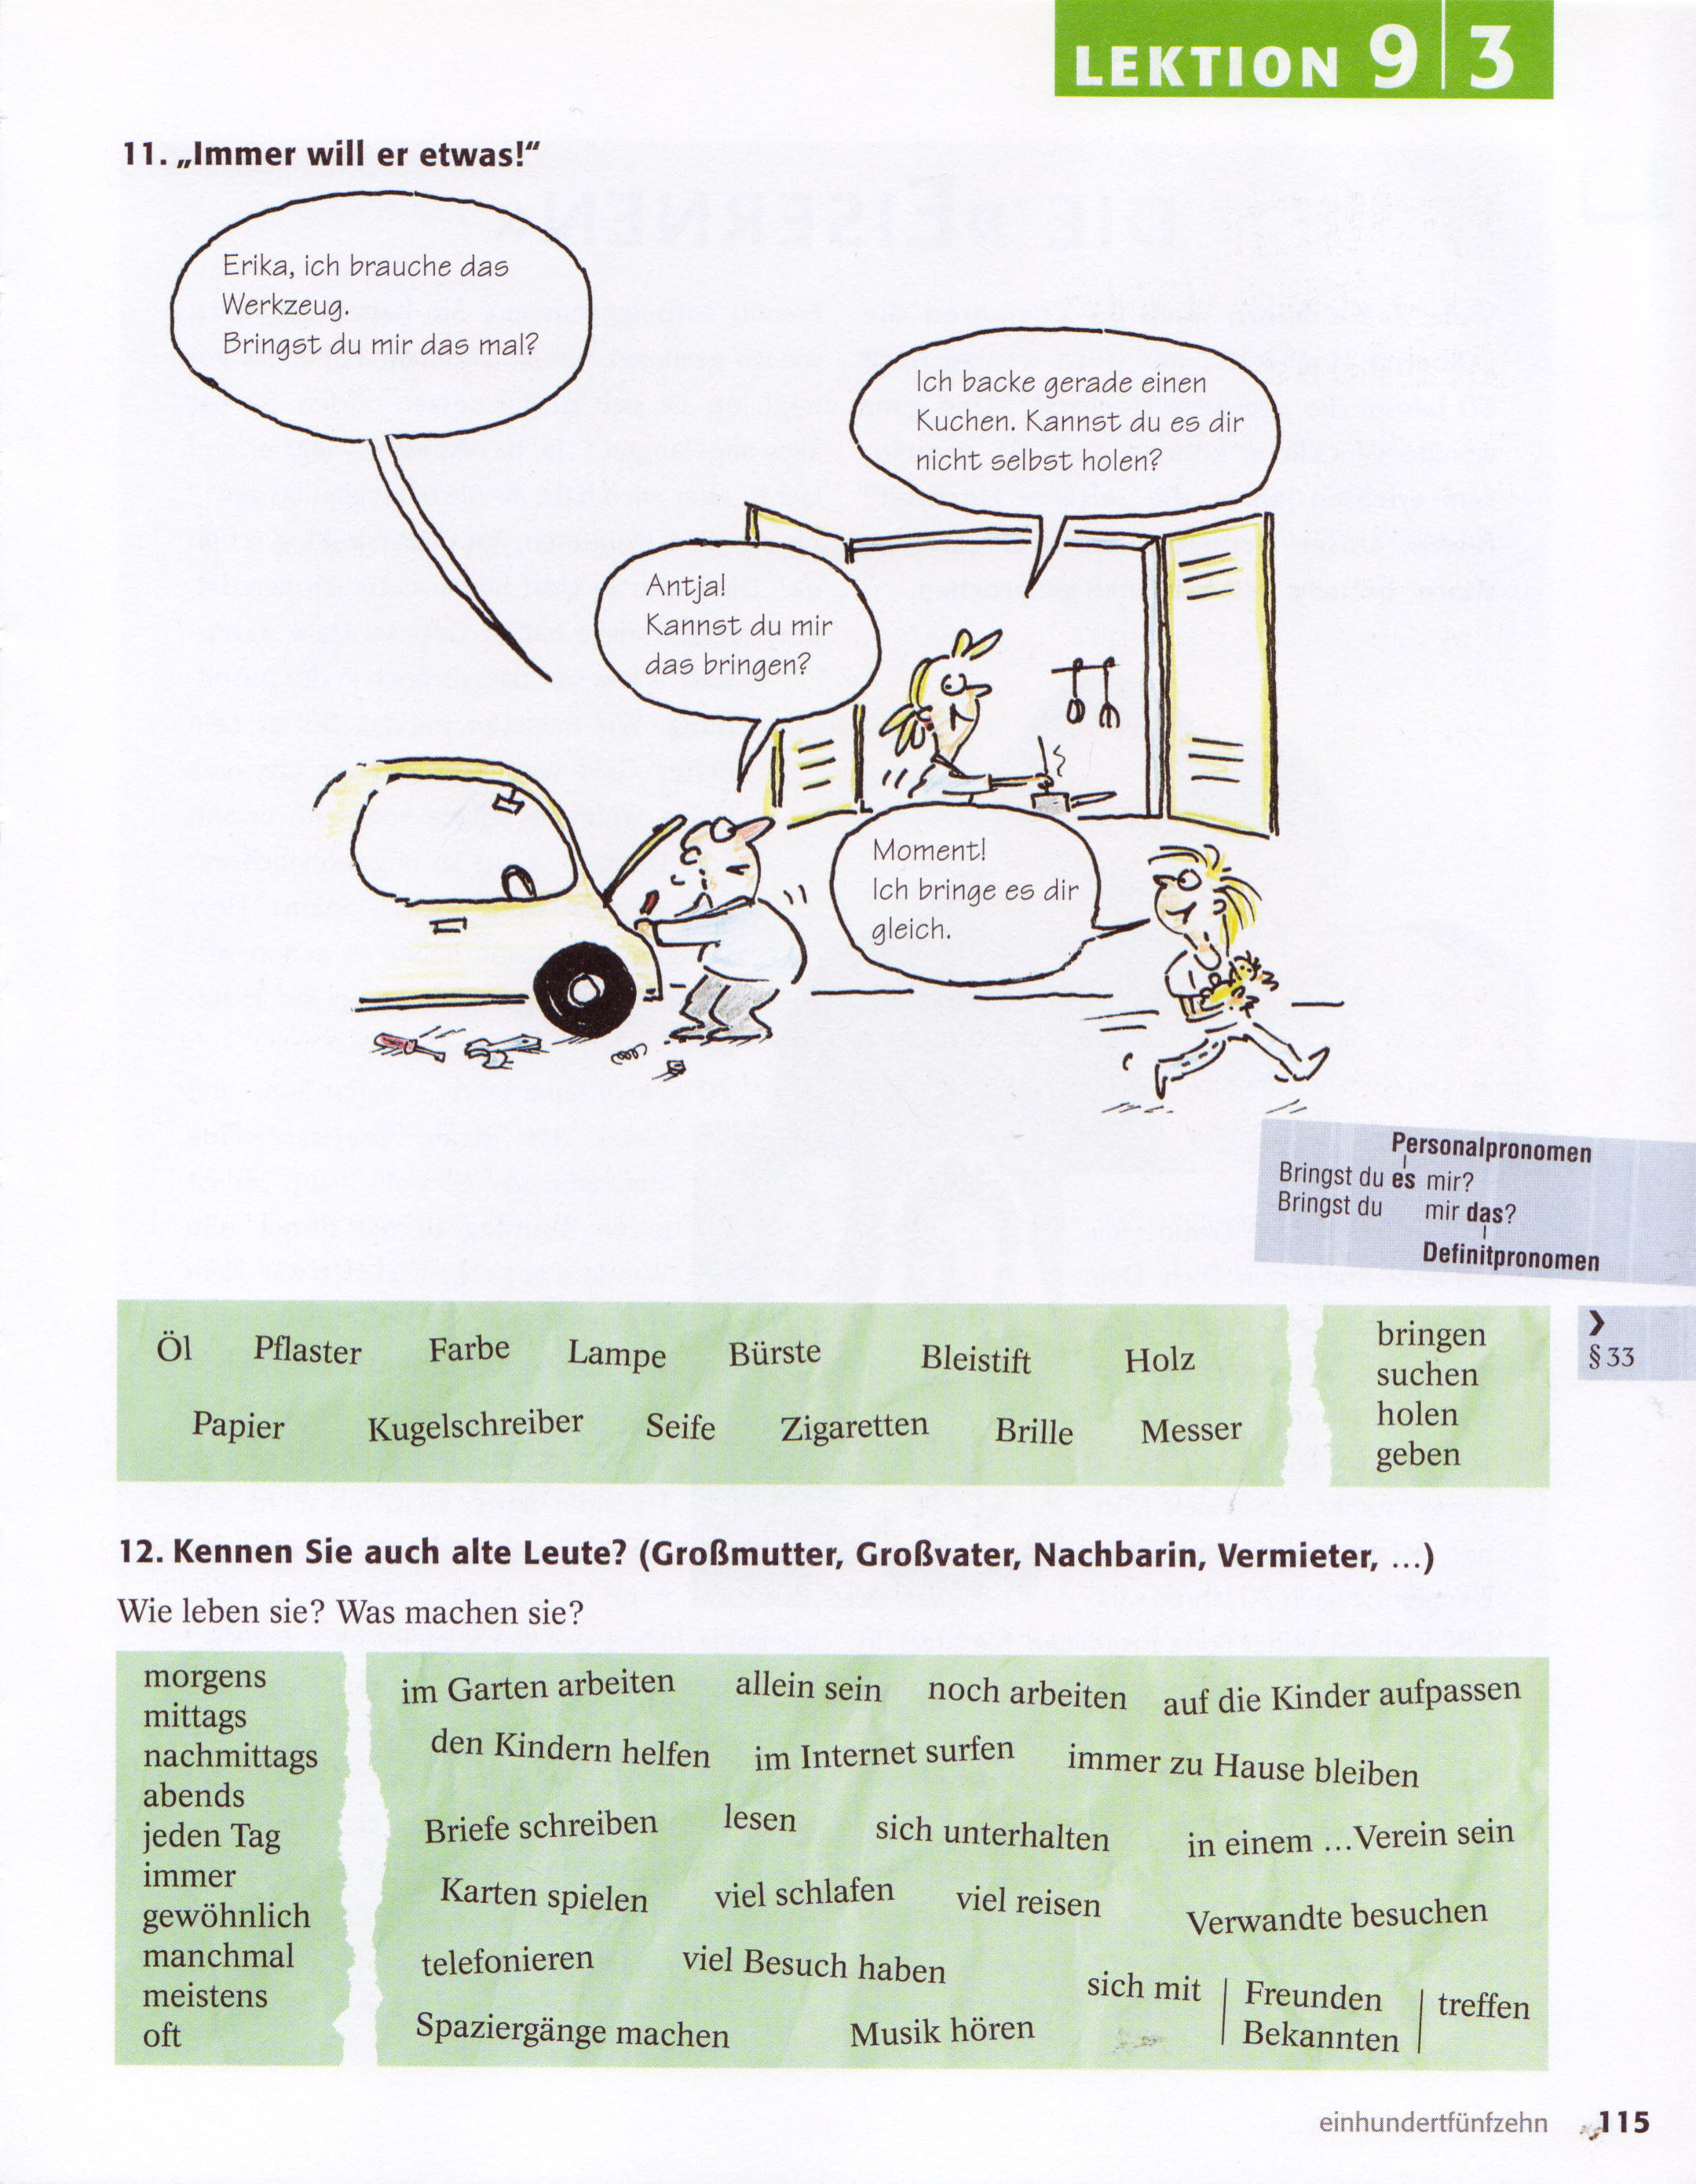 LEKTION 9 | 3
11. „Immer will er etwas!“
Erika, ich brauche das
Werkzeug.
Bringst du mir das mal?
Ich backe gerade einen
Kuchen. Kannst du es dir
nicht selbst holen?
Antja!
Kannst du mir
das bringen?
Moment!
Ich bringe es dir
gleich.
Personalpronomen
Bringst du es mir?
Bringst du mir das?
Definitpronomen
Öl Pflaster Farbe Lampe Bürste Bleistift Holz
Papier Kugelschreiber Seife Zigaretten Brille Messer
bringen
suchen
holen
geben
❯
§ 33
12. Kennen Sie auch alte Leute? (Großmutter, Großvater, Nachbarin, Vermieter, ...)
Wie leben sie? Was machen sie?
morgens
mittags
nachmittags
abends
jeden Tag
immer
gewöhnlich
manchmal
meistens
oft
im Garten arbeiten allein sein noch arbeiten auf die Kinder aufpassen
den Kindern helfen im Internet surfen immer zu Hause bleiben
Briefe schreiben lesen sich unterhalten in einem ...Verein sein
Karten spielen viel schlafen viel reisen Verwandte besuchen
telefonieren viel Besuch haben
sich mit | Freunden | treffen
Bekannten
Spaziergänge machen Musik hören
einhundertfünfzehn 115